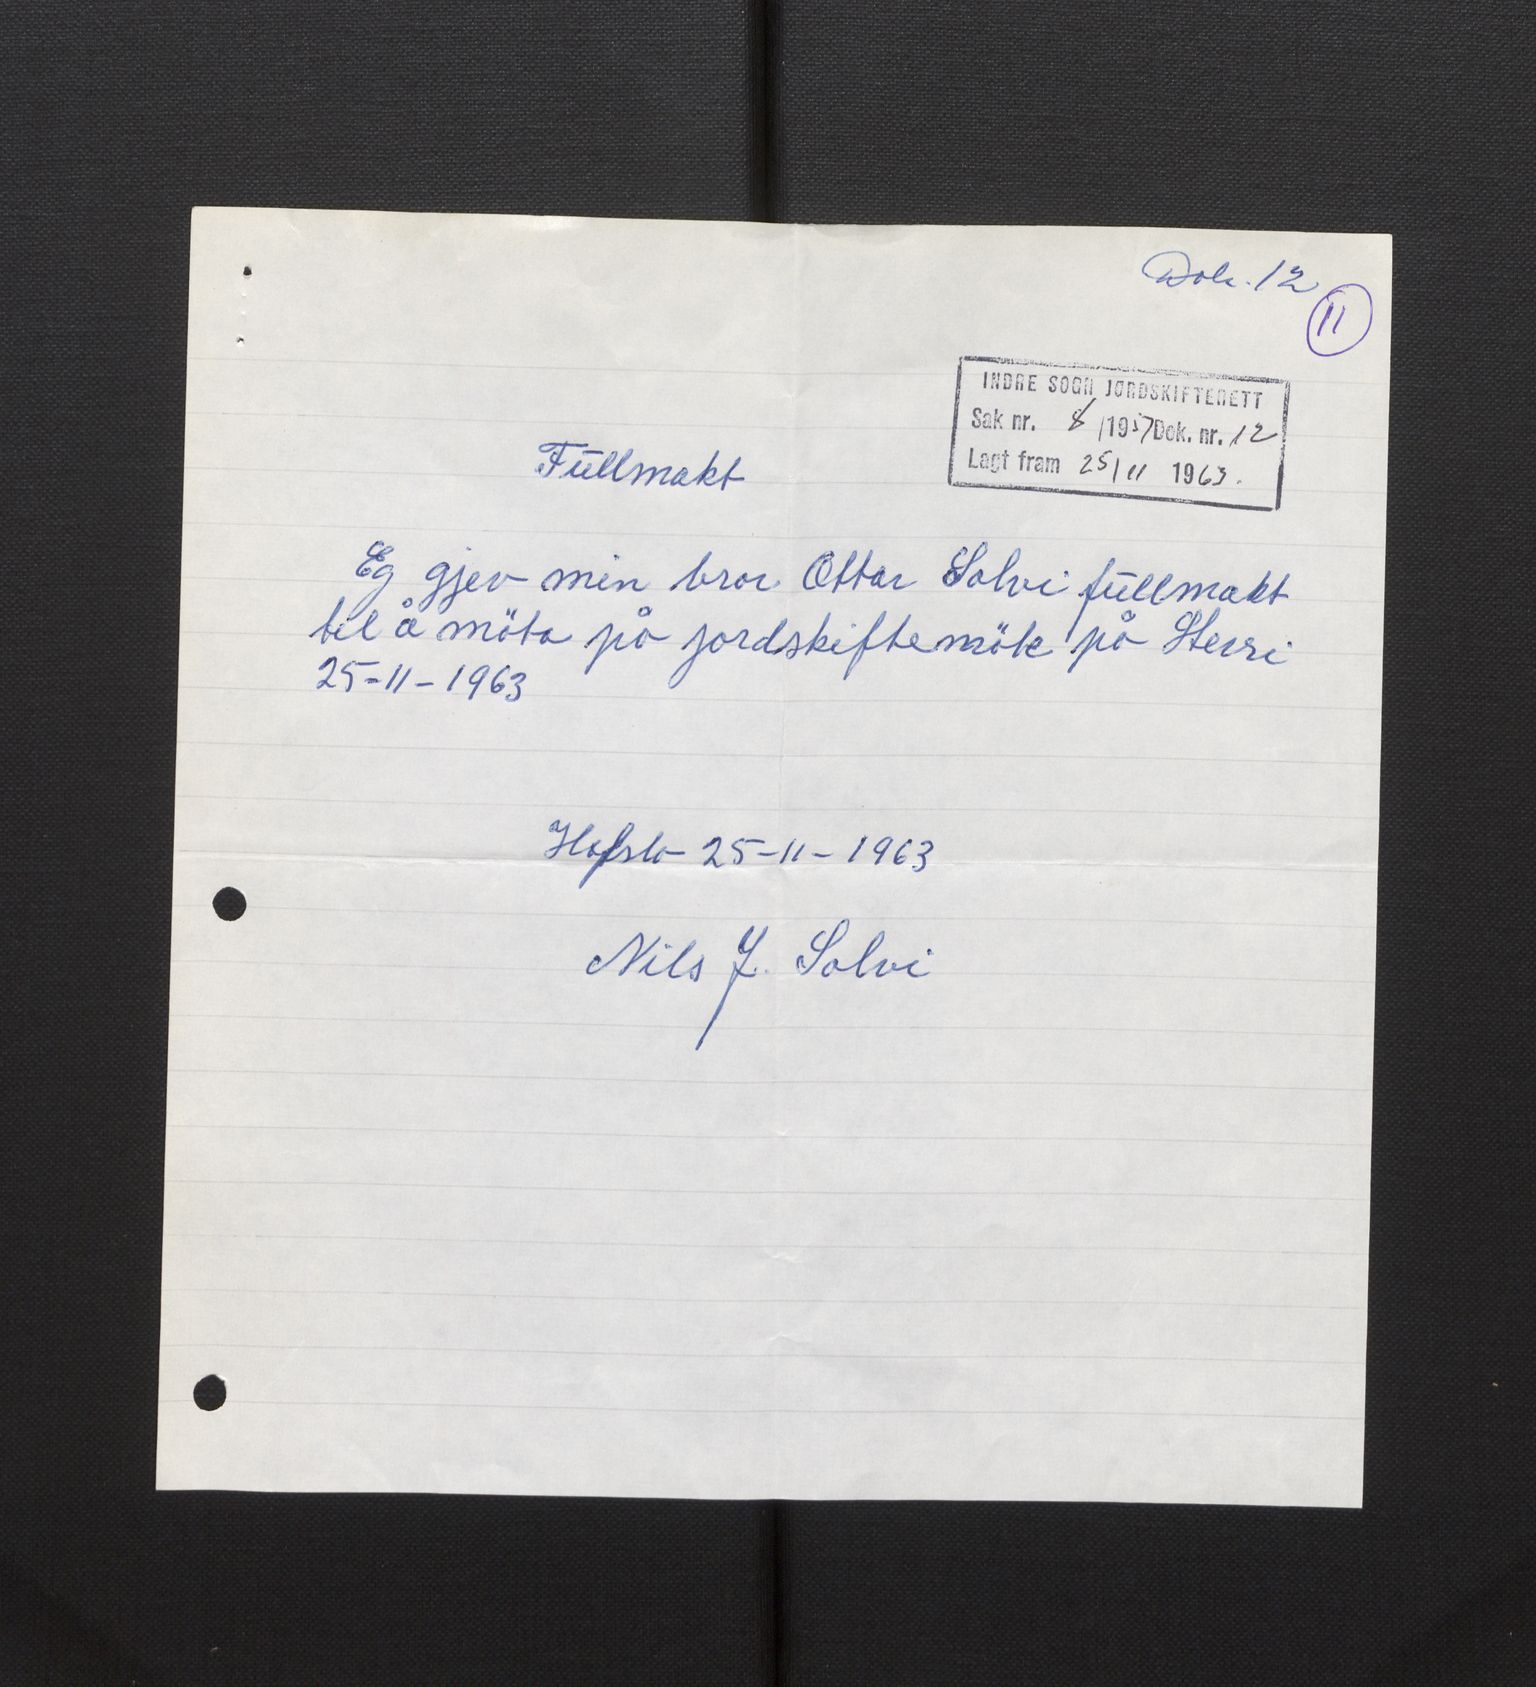 Dok. 12
11
INDRE SOGN JORDSKIFTERETT
Sak nr. 8/1957 Dok. nr. 12
Lagt fram 25/11 1963.
Füllmakt
Eg gjev min bror Ottar Solvi füllmakt
til å möta på jordskiftemöte på
25-11-1963
Hafslo 25-11-1963
Nils J. Solvi